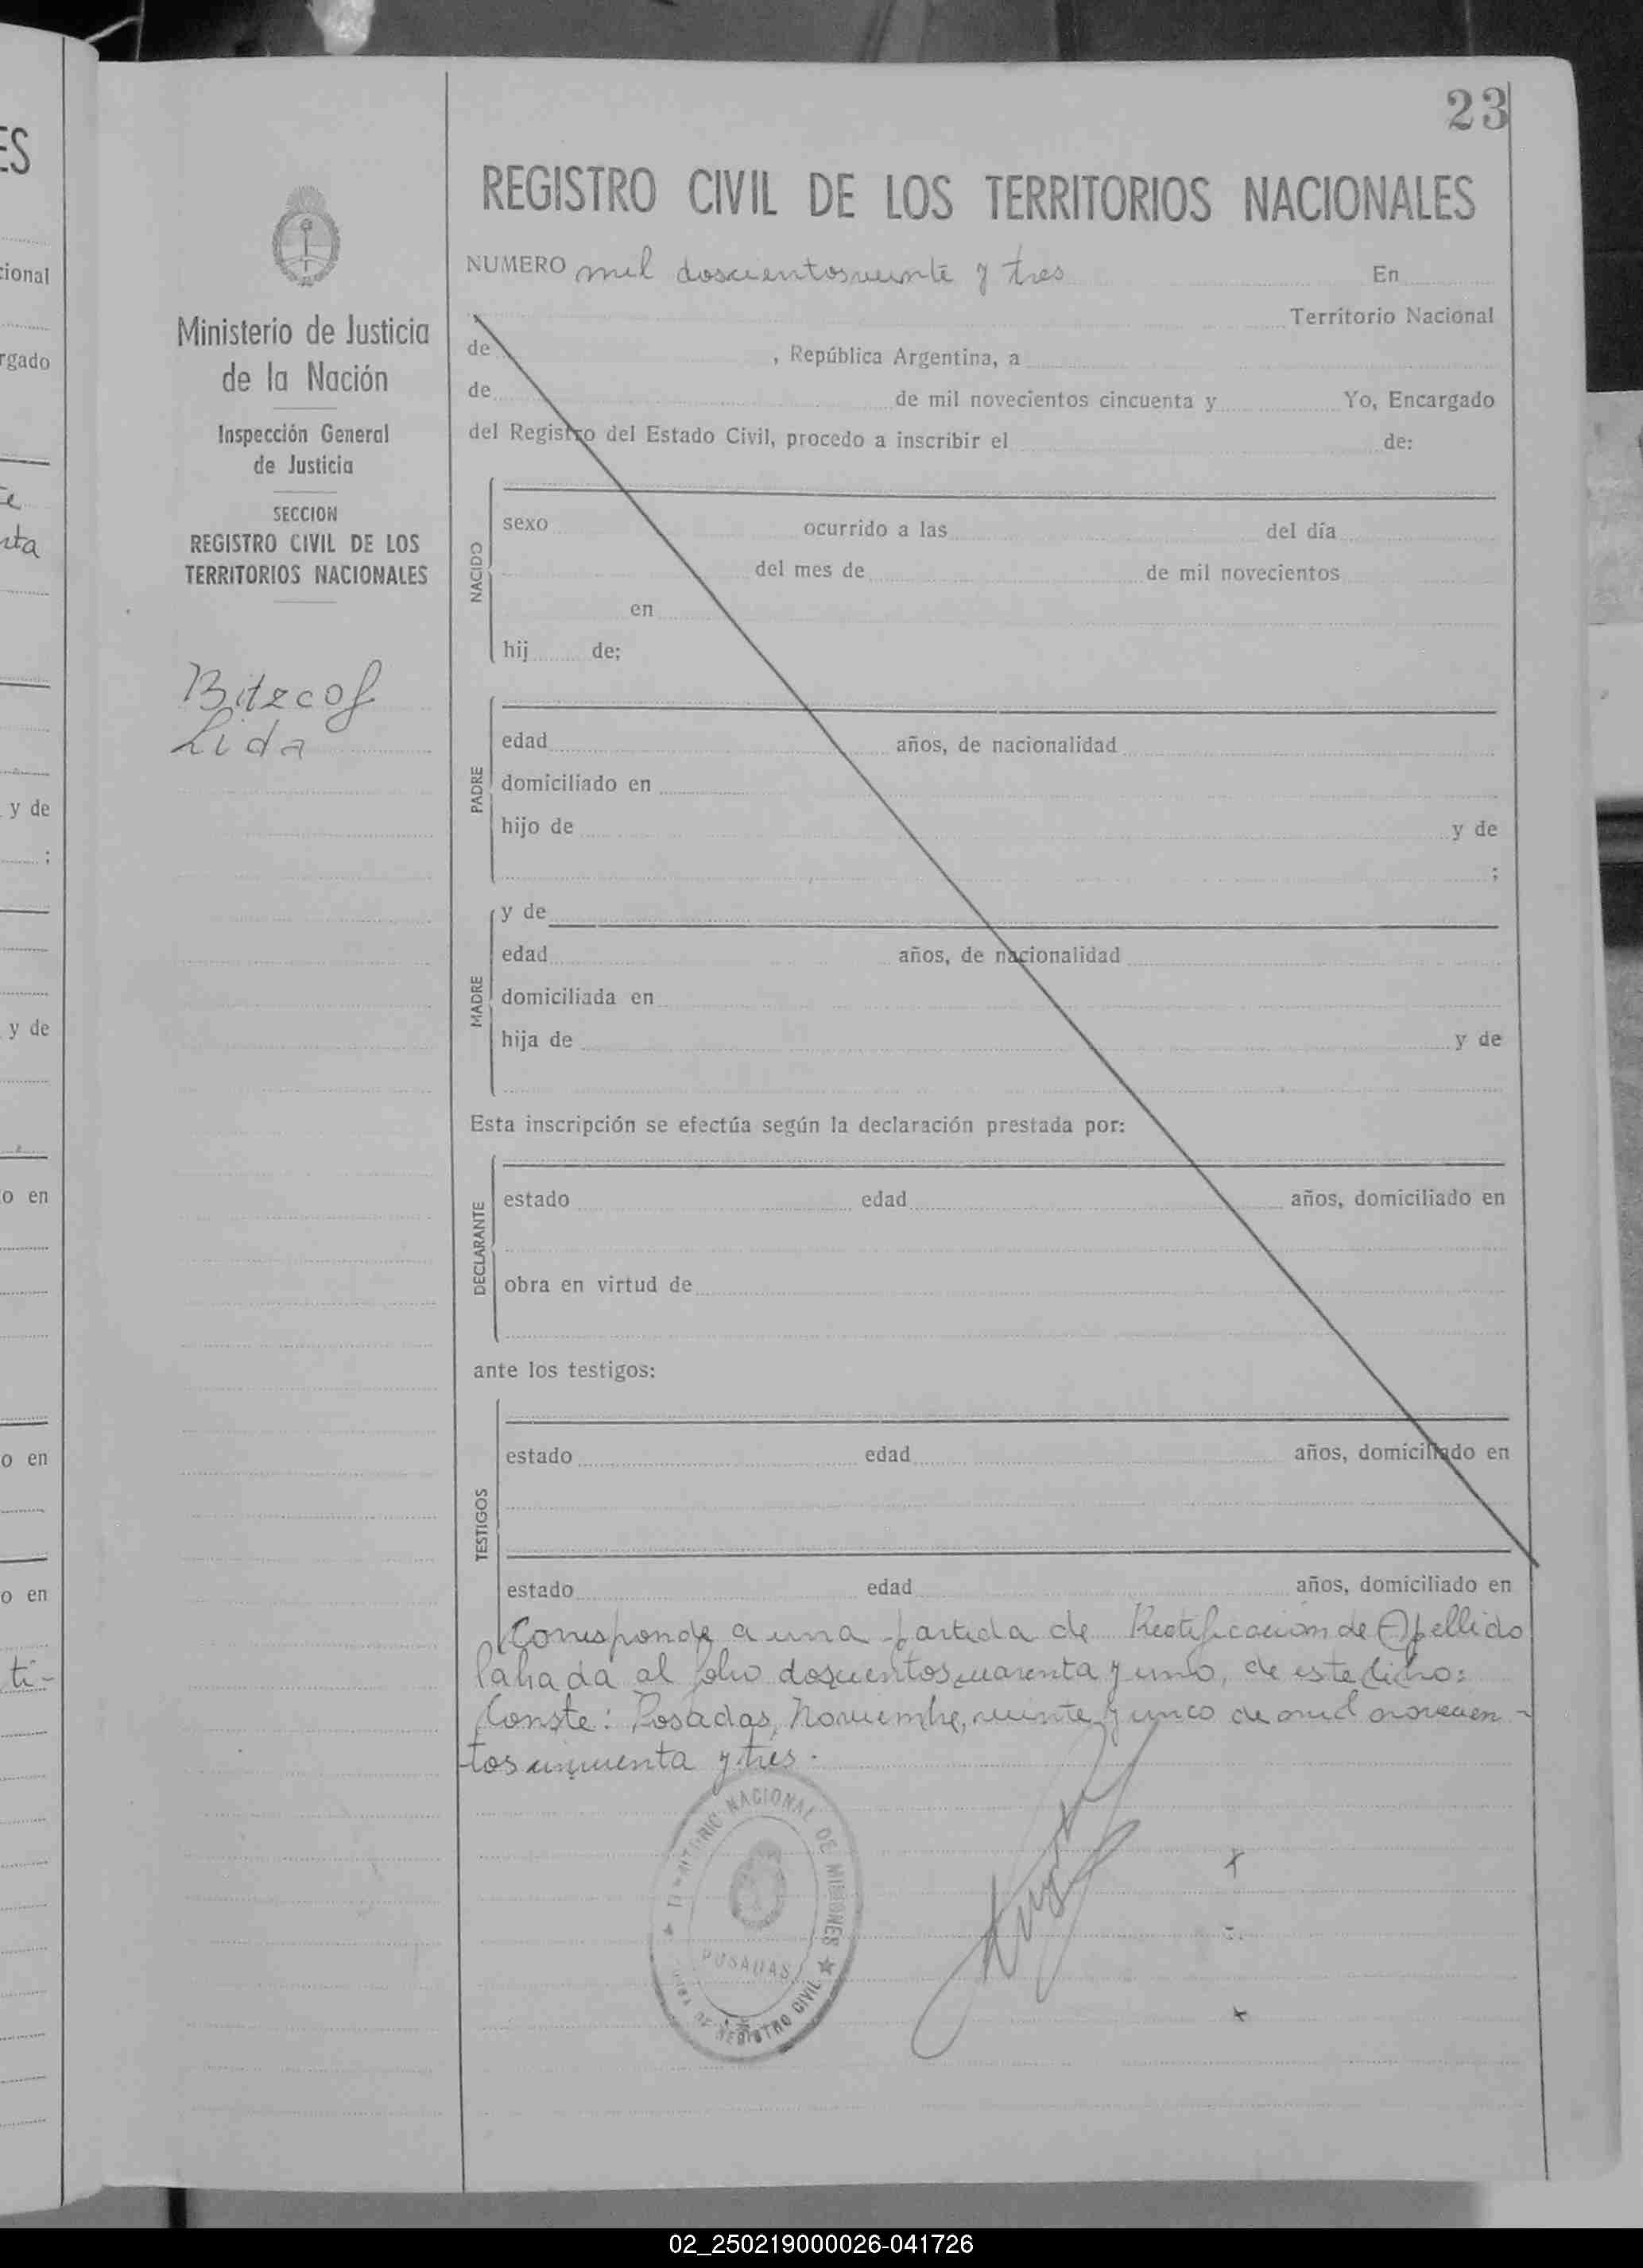 23
ES
cional
rgado
te
nta
y de
;
y de
o en
o en
o en
ti-
Ministerio de Justicia
de la Nación
Inspección General
de Justicia
SECCION
REGISTRO CIVIL DE LOS
TERRITORIOS NACIONALES
Bitzcof
Lida
REGISTRO CIVIL DE LOS TERRITORIOS NACIONALES
NUMERO mil doscientosveinte y tres En
Territorio Nacional
de , República Argentina, a
de de mil novecientos cincuenta y Yo, Encargado
del Registro del Estado Civil, procedo a inscribir el de:
NACIDO
sexo ocurrido a las del día
del mes de de mil novecientos
en
hij de;
PADRE
edad años, de nacionalidad
domiciliado en
hijo de y de
;
MADRE
y de
edad años, de nacionalidad
domiciliada en
hija de y de
Esta inscripción se efectúa según la declaración prestada por:
DECLARANTE
estado edad años, domiciliado en
obra en virtud de
ante los testigos:
TESTIGOS
estado edad años, domiciliado en
estado edad años, domiciliado en
Corresponde a una partida de Rectificación de Apellido
labrada al folio doscientoscuarenta y uno, de este libro:
Conste: Posadas, Noviembre, veinte y cinco de mil novecien-
tos cincuenta y tres.
TERRITORIO NACIONAL DE MISIONES
POSADAS
DE REGISTRO CIVIL
02_250219000026-041726